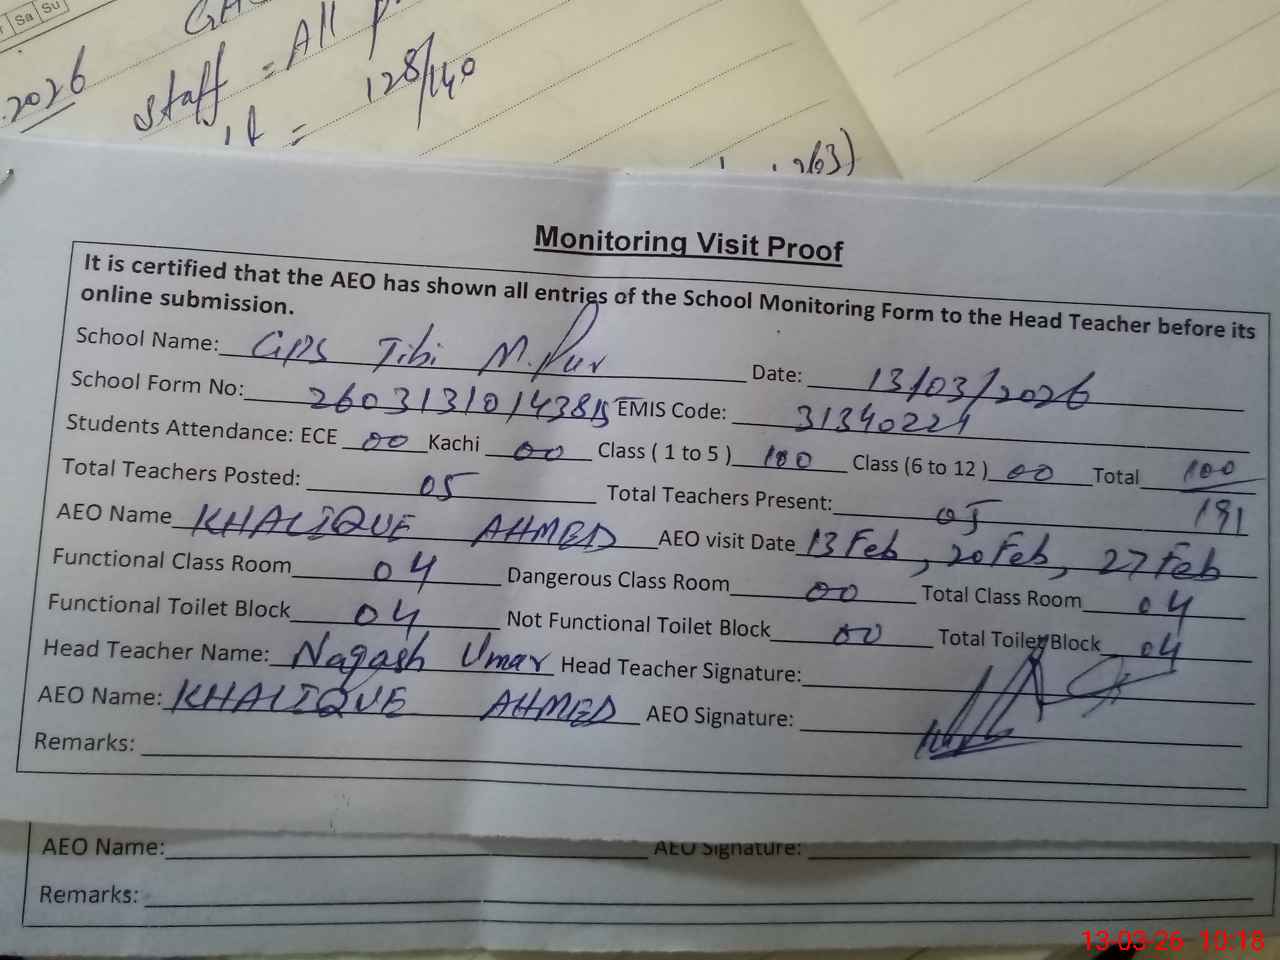 Sa Su
2026
Staff = All
= 128/140
Monitoring Visit Proof
It is certified that the AEO has shown all entries of the School Monitoring Form to the Head Teacher before its
online submission.
School Name: GPS Tibi M.Pur Date: 13/03/2026
School Form No: EMIS Code: 31340224
Students Attendance: ECE 00 Kachi 00 Class ( 1 to 5 ) 100 Class (6 to 12 ) 00 Total 100
191
Total Teachers Posted: 05 Total Teachers Present: 05
AEO Name KHALIQUE AHMED AEO visit Date 13 Feb, 20 Feb, 27 Feb
Functional Class Room 04 Dangerous Class Room 00 Total Class Room 04
Functional Toilet Block 04 Not Functional Toilet Block 00 Total Toilet Block 04
Head Teacher Name: Naqash Umar Head Teacher Signature:
AEO Name: KHALIQUE AHMED AEO Signature:
Remarks:
AEO Name: AEO Signature:
Remarks:
13-03-26 10:18